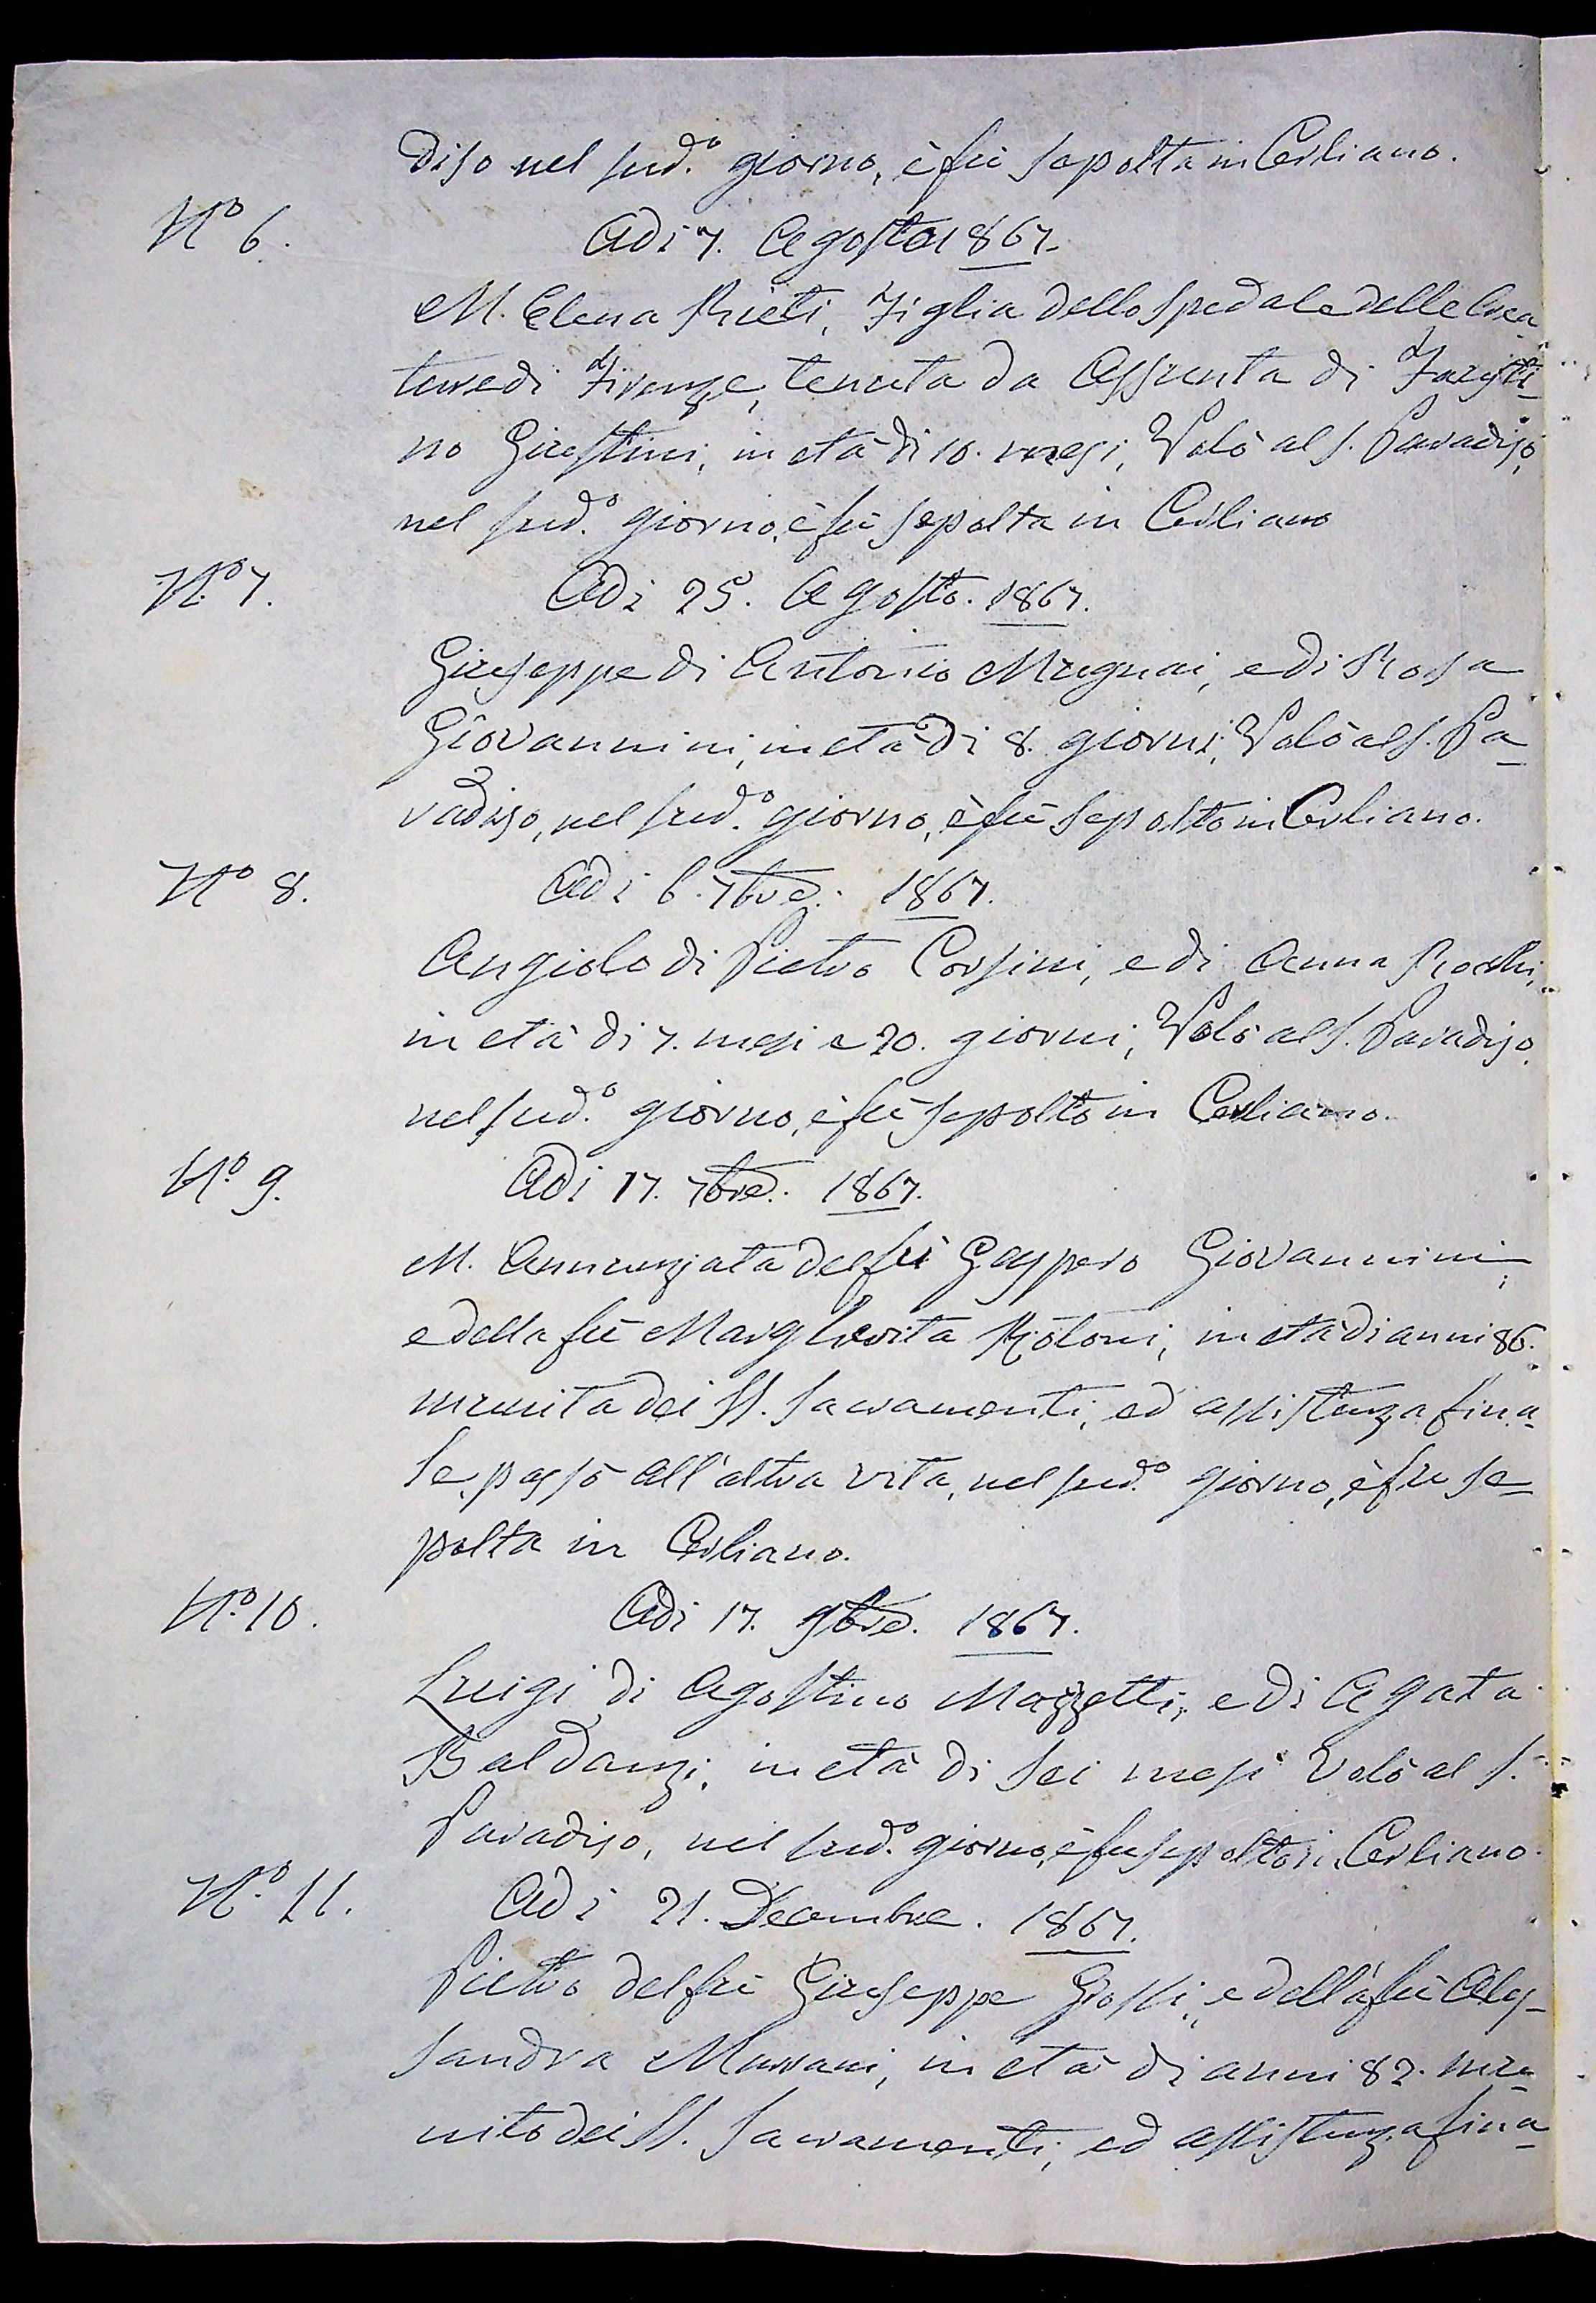 diso nel sud.º giorno, è fù sepolta in Cerliano.
Nº 6.
Adi 7. Agosto 1867.
M. Elena Rieti, Figlia dello Spedale delle Crea
ture di Firenze, tenuta da Assunta di Fausti-
no Giustini, in età di 10. mesi, Volò al S. Paradiso,
nel sud.º giorno, è fù sepolta in Cerliano
Nº. 7.
Adi 25. Agosto. 1867.
Giuseppe di Antonio Mugnai, e di Rosa
Giovannini, in età di 8. giorni, Volò al S. Pa-
radiso, nel sud.º giorno, è fù sepolto in Cerliano.
Nº 8.
Adi 6. 7bre. 1867.
Angiolo di Pietro Corsini, e di Anna
in età di 7. mesi e 20. giorni, Volò al S. Paradiso,
nel sud.º giorno, è fù sepolto in Cerliano.
Nº. 9.
Adi 17. 7bre. 1867.
M. Annunziata del fù Gaspero Giovannini,
e della fù Margherita in età di anni 86.
munita dei SS. Sacramenti, ed assistenza fina-
le, passò all'altra vita, nel sud.º giorno, è fu se-
polta in Cerliano.
Nº. 10.
Adi 17. 9bre. 1867.
Luigi di Agostino Mazzetti, e di Agata
Baldanzi, in età di sei mesi Volò al S.
Paradiso, nel sud.º giorno, è fu sepolto in Cerliano.
Nº. 11.
Adi 21. Decembre. 1867.
Pietro del fù Giuseppe Grossi, e della fù Ales-
sandra in età di anni 82. mu-
nito dei SS. Sacramenti, ed assistenza fina-